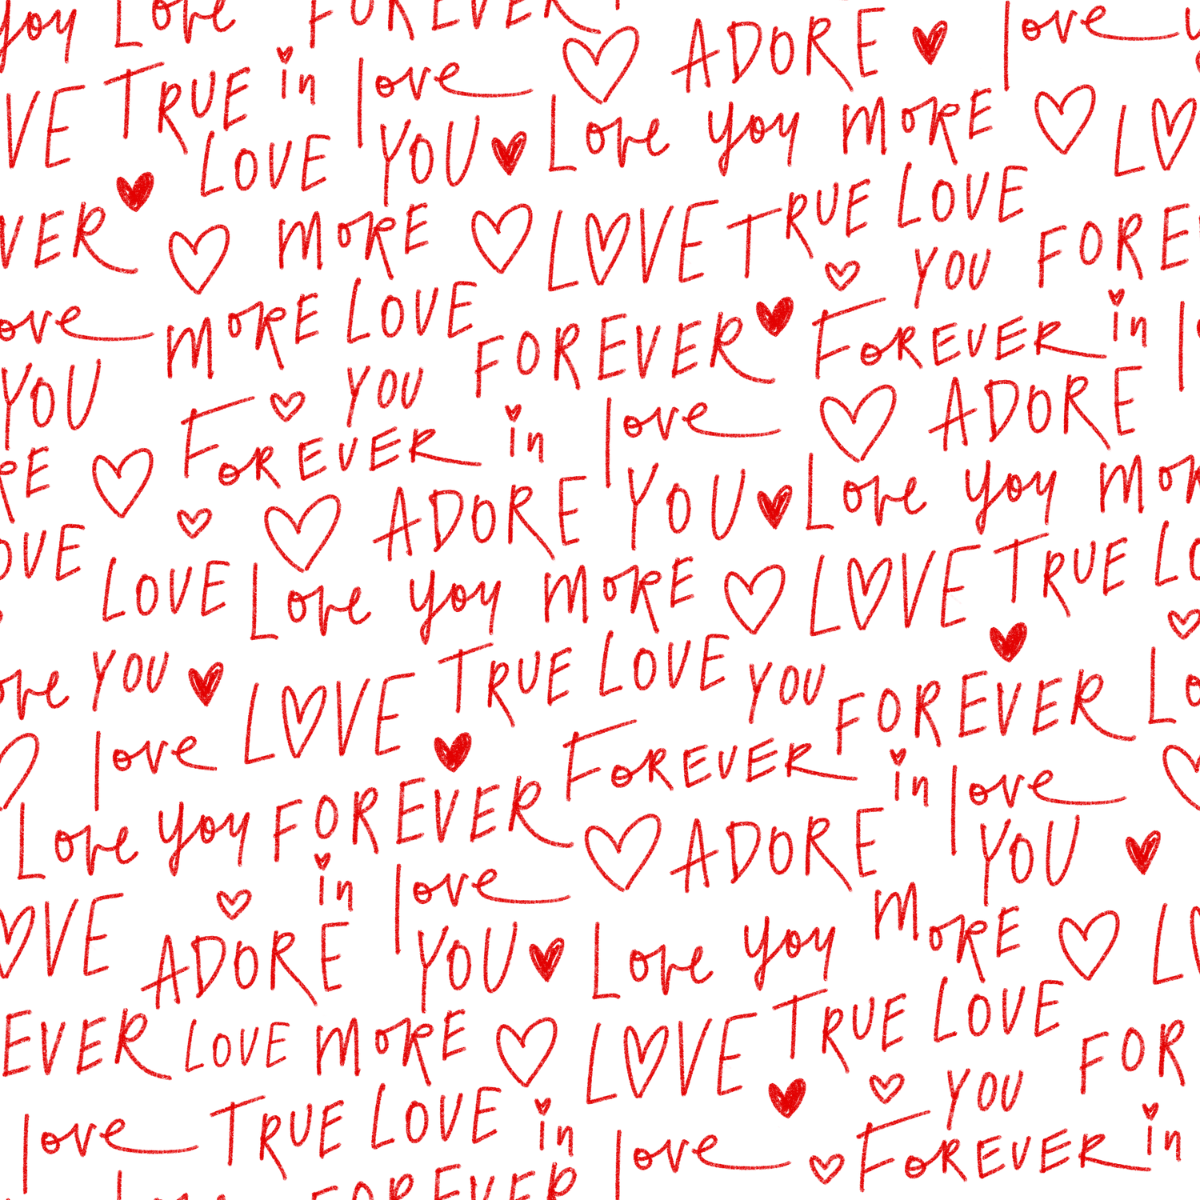 you Love FOREVER
ADORE love
VE TRUE in love
LOVE YOU Love you MORE LOV
VER MORE LOVE TRUE LOVE
YOU FORE
ove MORE LOVE
FOREVER FOREVER in l
YOU YOU
FOREVER in love ADORE
RE
ADORE YOU Love you MOR
OVE LOVE Love you MORE LOVE TRUE LO
ove YOU LOVE TRUE LOVE YOU FOREVER Lo
love FOREVER in love
Love you FOREVER ADORE YOU
in love
OVE ADORE YOU Love you MORE L
EVER LOVE MORE LOVE TRUE LOVE
FOR
love TRUE LOVE in love YOU
FOREVER in
FOREVER